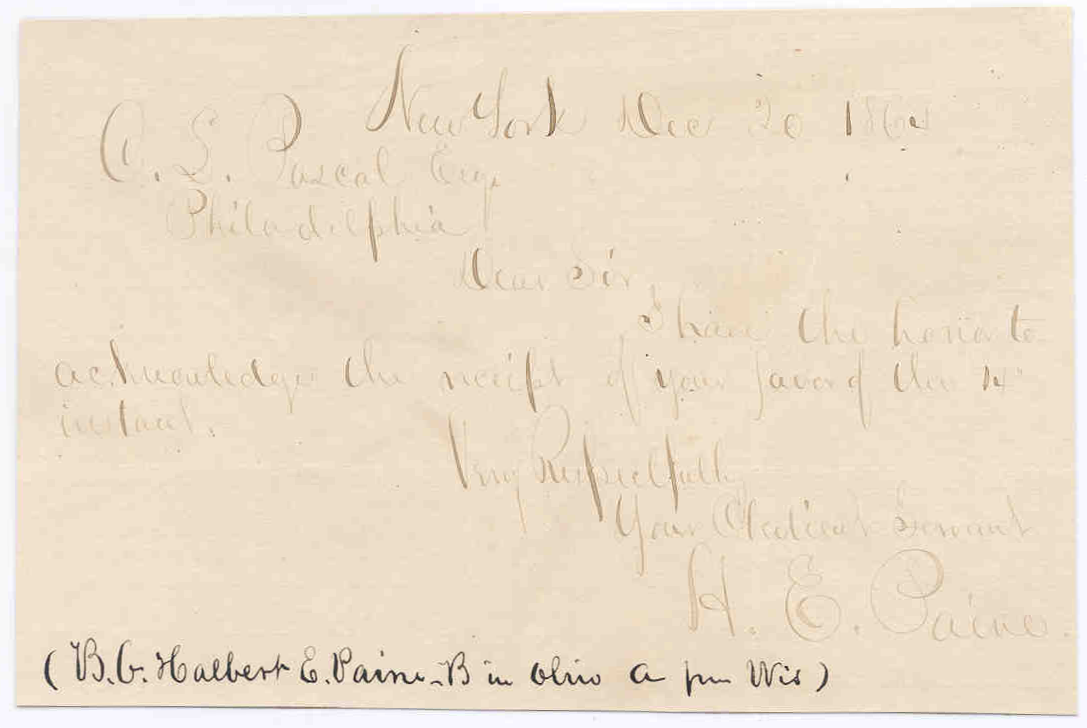 New York Dec 20 1864
C. S. Pascal Esq.
Philadelphia
Dear Sir,
I have the honor to
acknowledge the receipt of your favor of the 14"
instant.
Very Respectfully
Your Obedient Servant
H. E. Paine.
(B.G. Halbert E. Paine - B in Ohio A fm Wis)